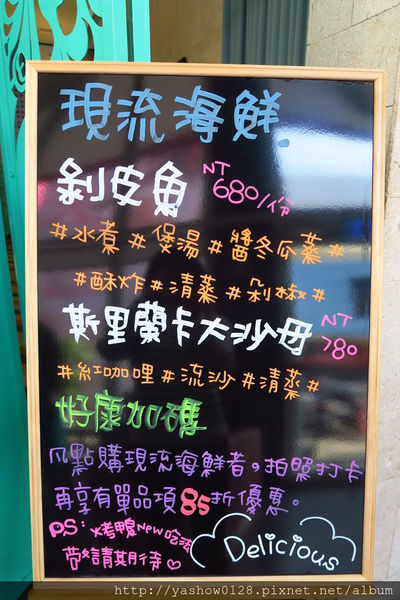 現流海鮮
剝皮魚 NT 680/份
#水煮 #煲湯 #醬冬瓜蒸#
#酥炸 #清蒸 #剁椒#
斯里蘭卡大沙母 NT 780
#紅咖哩 #流沙 #清蒸#
好康加碼
凡點購現流海鮮者，拍照打卡
再享有單品項85折優惠。
PS：烤鴨NEW吃法
敬請期待♡
Delicious
http://yashow0128.pixnet.net/album